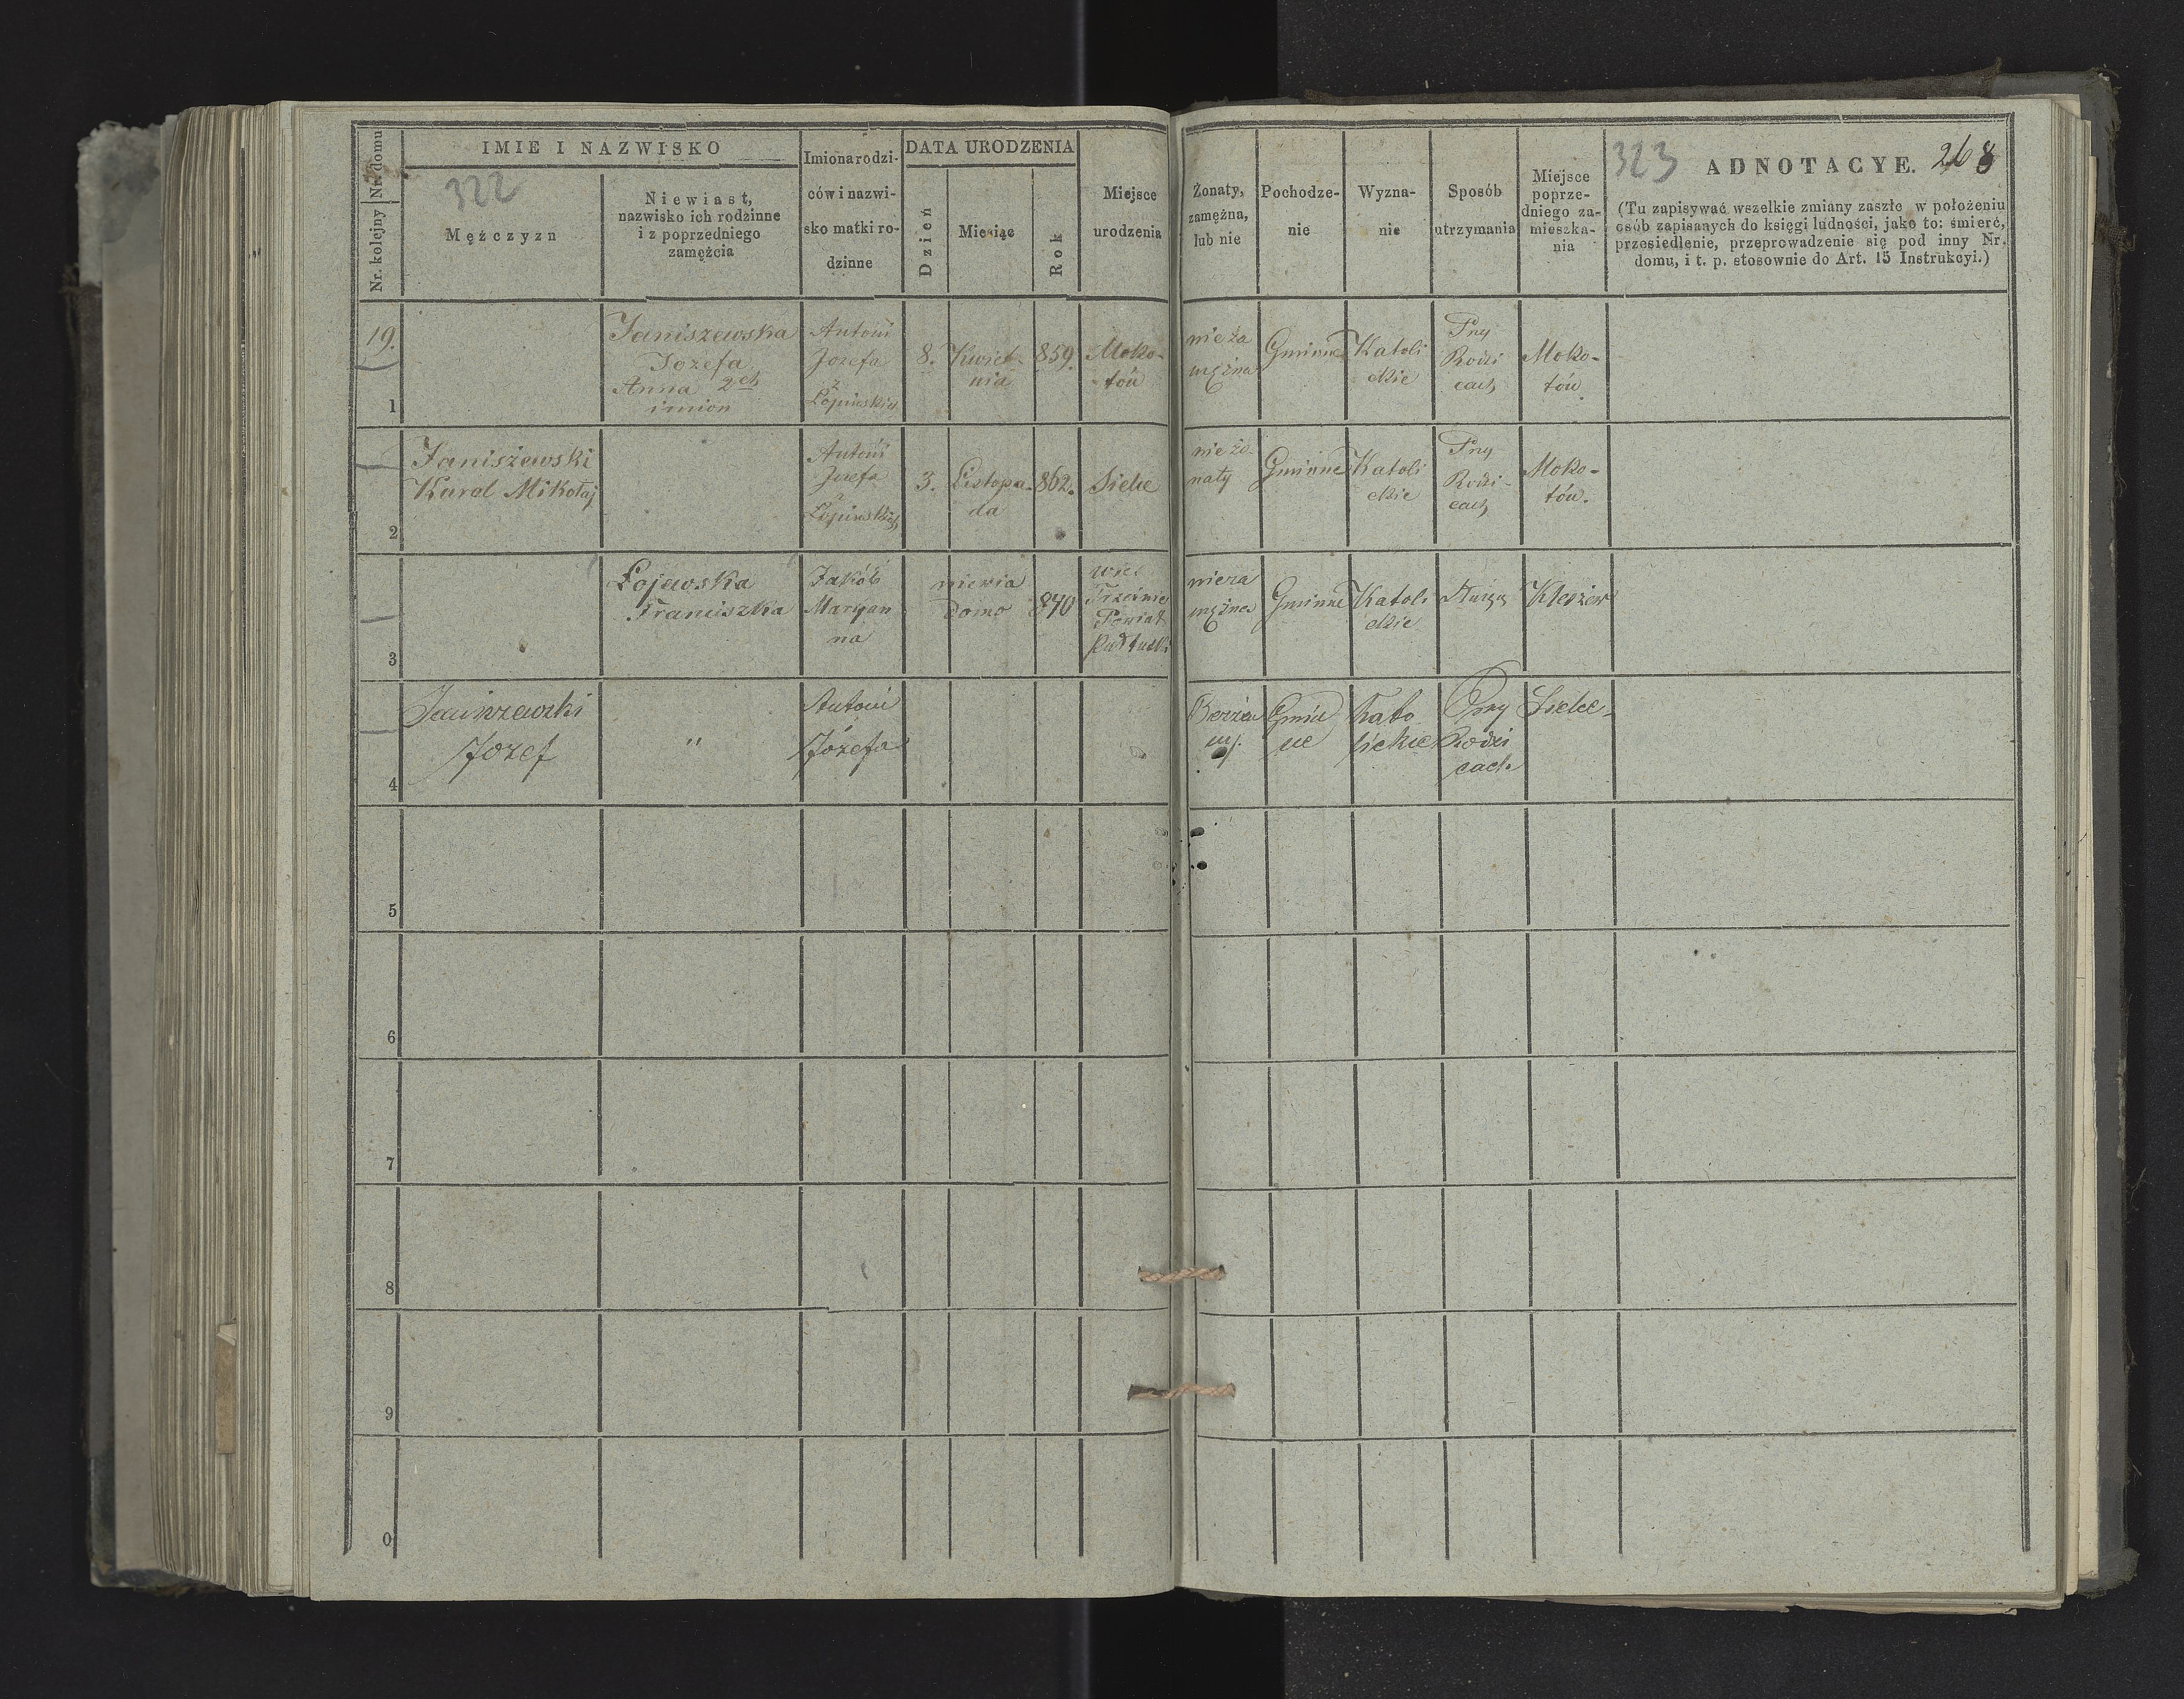 Nr. domu
Nr. kolejny
IMIE I NAZWISKO
322
Mężczyzn
Niewiast,
nazwisko ich rodzinne
i z poprzedniego
zamężcia
Imiona rodzi-
ców i nazwi-
sko matki ro-
dzinne
DATA URODZENIA
Dzień
Miesiąc
Rok
Miejsce
urodzenia
Żonaty,
zamężna,
lub nie
Pochodze-
nie
Wyzna-
nie
Sposób
utrzymania
Miejsce
poprze-
dniego za-
mieszka-
nia
323 ADNOTACYE. 268
(Tu zapisywać wszelkie zmiany zaszłe w położeniu
osób zapisanych do księgi ludności, jako to: śmierć,
przesiedlenie, przeprowadzenie się pod inny Nr.
domu, i t. p. stosownie do Art. 15 Instrukcyi.)
19.
1
Janiszewska
Jozefa
Anna 2ch
imion
Antoni
Jozefa
z
8.
Kwiet-
nia
859.
Moko-
tów
nieza
mężna
Gminne
Katoli
ckie
Przy
Rodzi
cach
Moko-
tów
2
Janiszewski
Karol Mikołaj
Antoni
Jozefa
z
3.
Listopa-
da
862.
Sielce
nieżo
naty
Gminne
Katoli
ckie
Przy
Rodzi-
cach
Moko-
tów.
3
Łojewska
Franciszka
Jakób
Maryan
na
niewia
domo
840
wieś
Powiat
Pułtuski
nieza
mężna
Gminne
Katoli
ckie
Służy
4
Janiszewski
Jozef
"
Antoni
Józefa
Bezżen
ny.
Gmin
ne
Kato
lickie
Przy
Rodzi
cach
Sielce
5
6
7
8
9
0